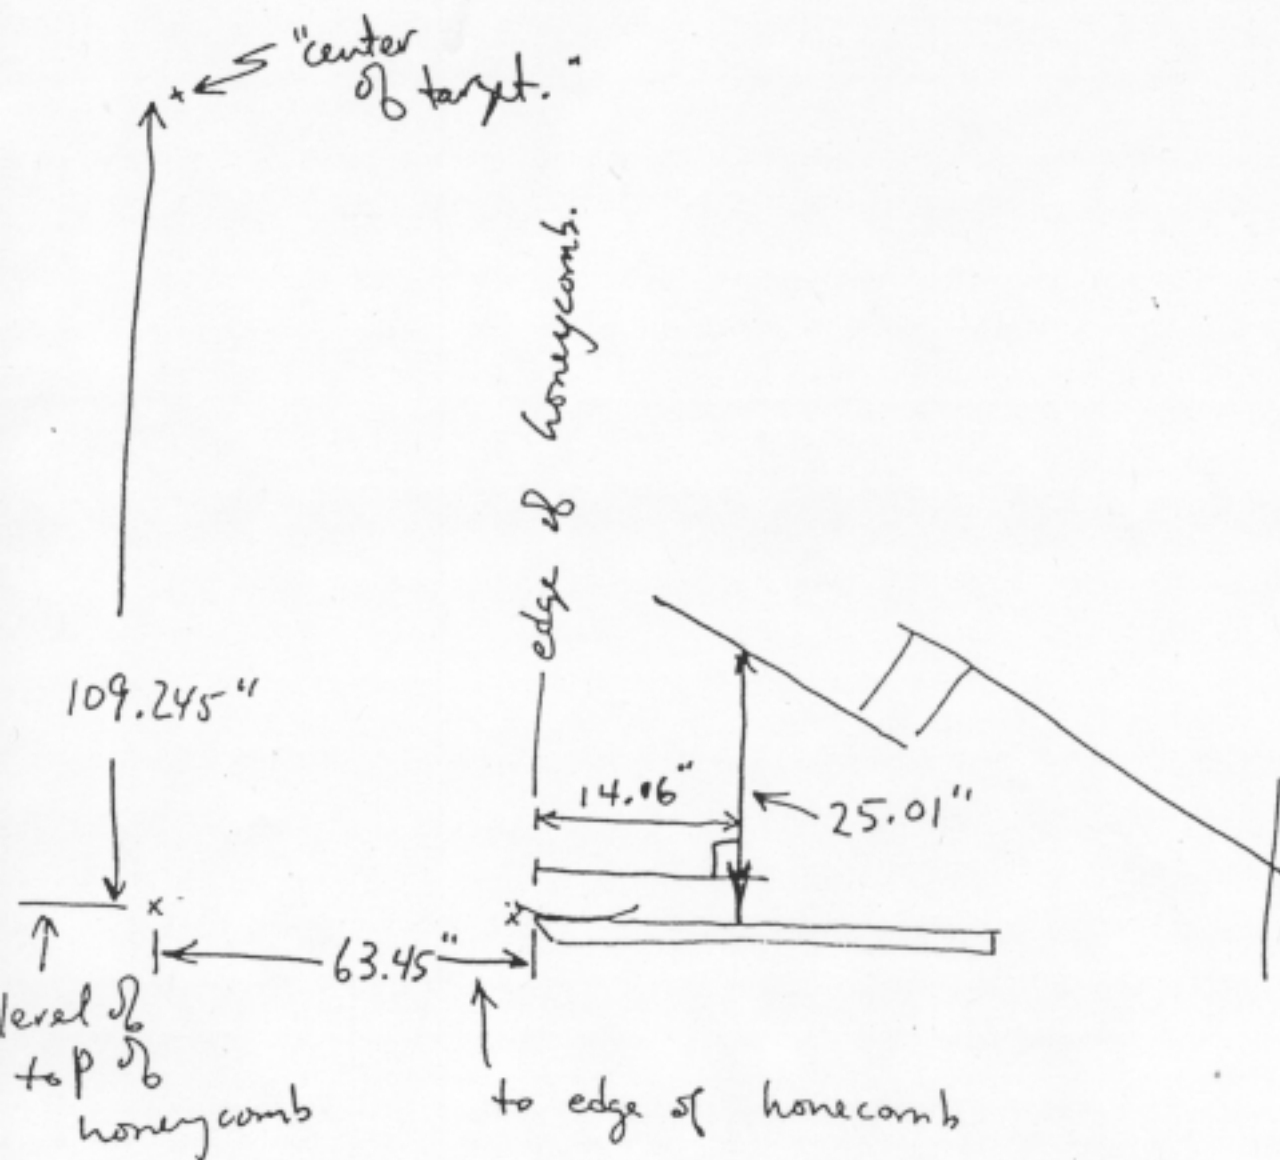 "center
of target."
edge of honeycomb.
109.245"
14.06"
25.01"
63.45"
level of
top of
honeycomb
to edge of honecomb